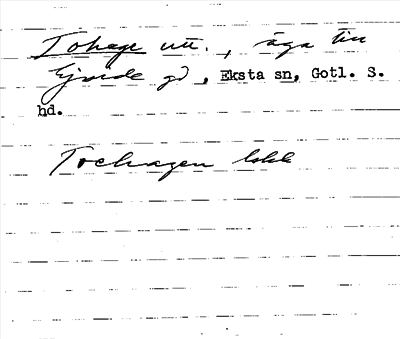 Tohage utt., äga till
Gjerde gd, Eksta sn, Gotl. S.
hd.
Trehagen lokk